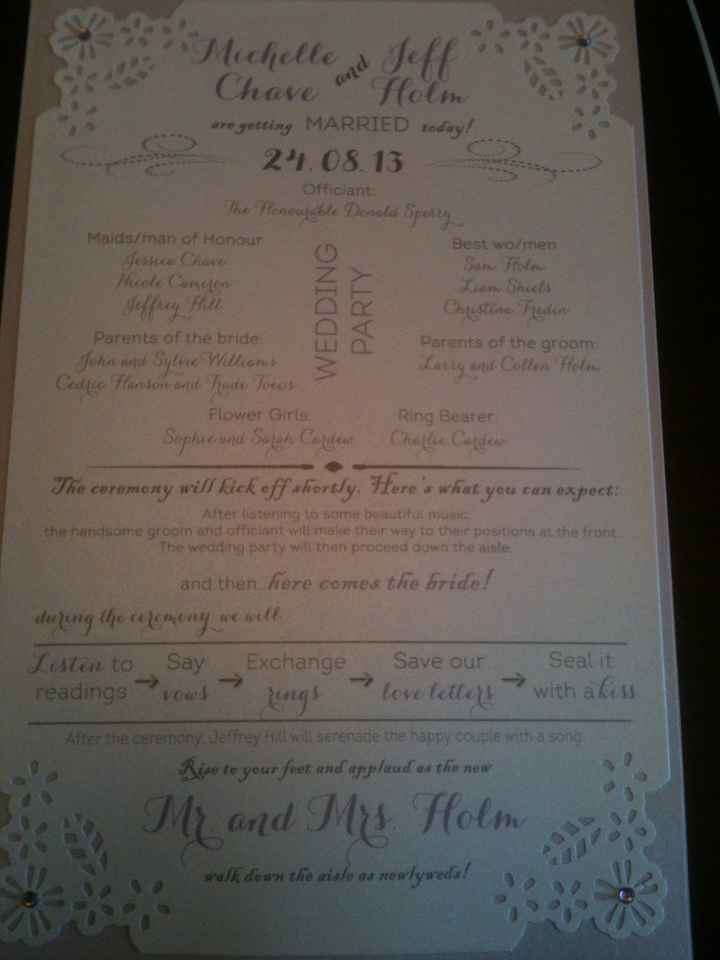 Michelle and Jeff
Chave Holm
are getting MARRIED today!
24.08.13
Officiant:
The Honourable Donald Sperry
WEDDING
PARTY
Maids/man of Honour
Jessica Chave
Nicole Cameron
Jeffrey Hill
Best wo/men
Sam Holm
Liam Shiels
Christina Fredin
Parents of the bride:
John and Sylvie Williams
Cedric Hanson and Trude Toews
Parents of the groom:
Larry and Colleen Holm
Flower Girls:
Sophie and Sarah Cardew
Ring Bearer:
Charlie Cardew
The ceremony will kick off shortly. Here's what you can expect:
After listening to some beautiful music,
the handsome groom and officiant will make their way to their positions at the front.
The wedding party will then proceed down the aisle,
and then...here comes the bride!
during the ceremony we will
Listen to
readings
Say
vows
Exchange
rings
Save our
love letters
Seal it
with a kiss
After the ceremony, Jeffrey Hill will serenade the happy couple with a song.
Rise to your feet and applaud as the new
Mr and Mrs. Holm
walk down the aisle as newlyweds!